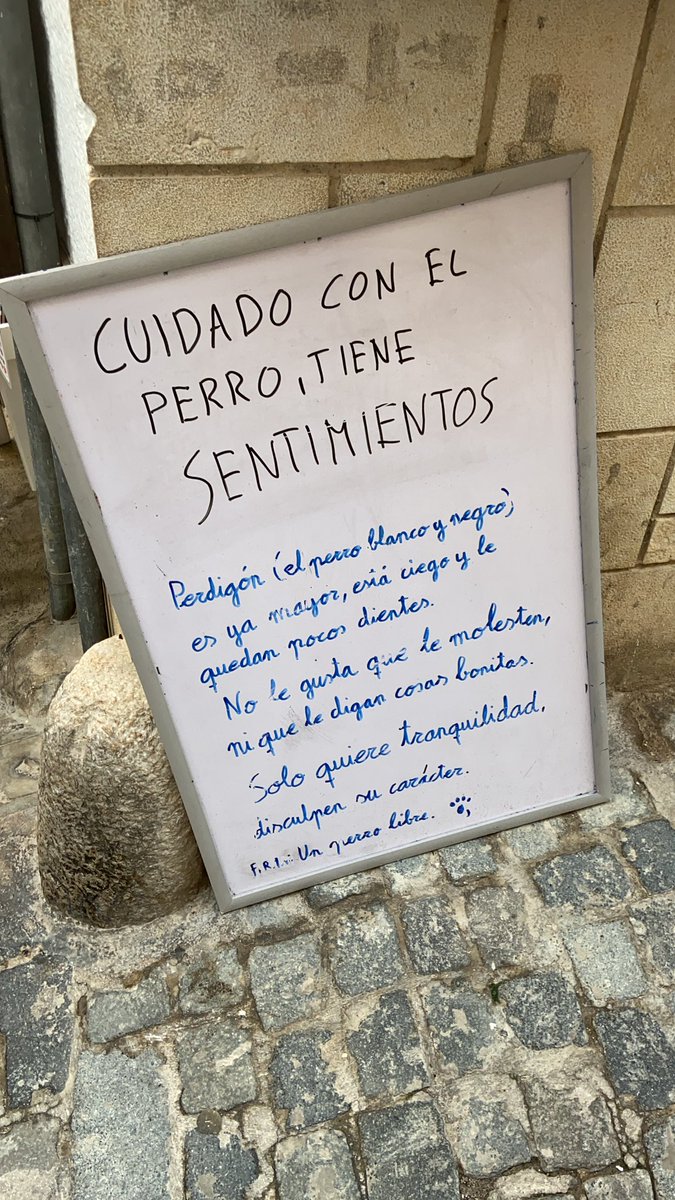 CUIDADO CON EL
PERRO, TIENE
SENTIMIENTOS
Perdigón (el perro blanco y negro)
es ya mayor, está ciego y le
quedan pocos dientes.
No le gusta que le molesten,
ni que le digan cosas bonitas.
Solo quiere tranquilidad,
disculpen su carácter.
Un perro libre.